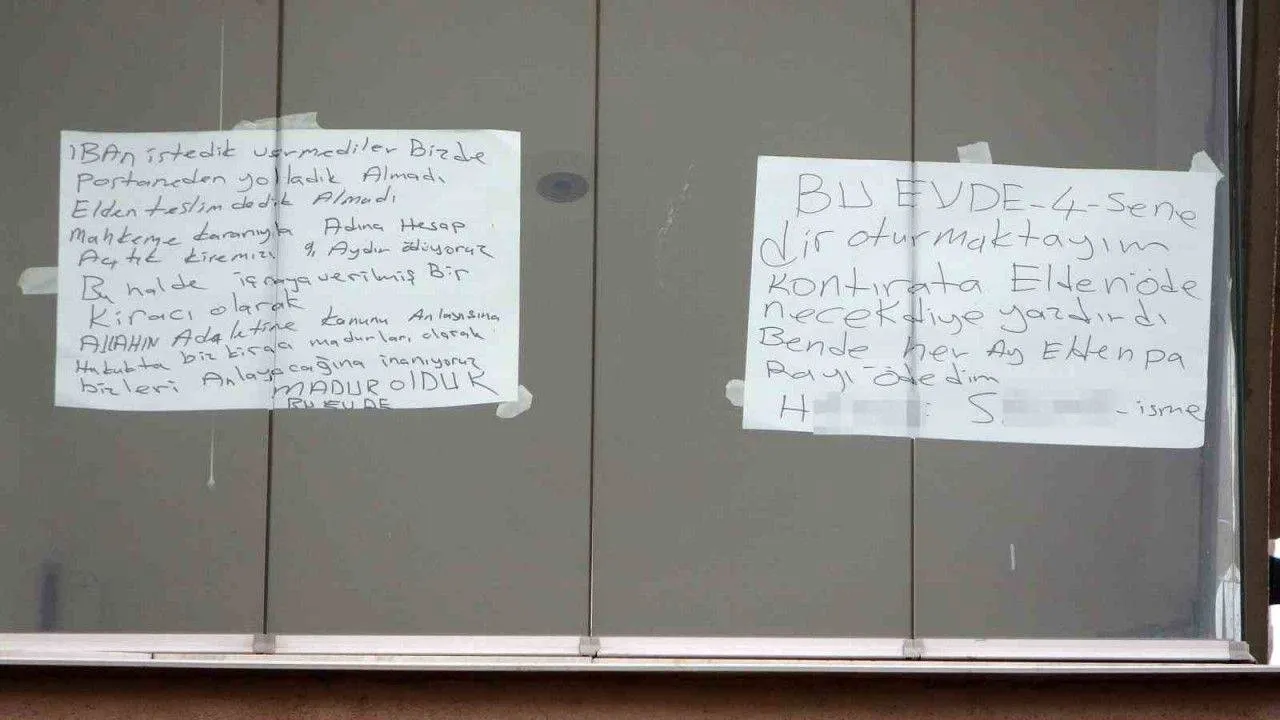 IBAN istedik vermediler Bizde
Postaneden yolladık Almadı
Elden teslim dedik Almadı
Mahkeme kararıyla Adına Hesap
Açtık kiremizi 9, Aydır ödüyoruz
Bu halde icraya verilmiş Bir
kiracı olarak
AllAHIN Adaletine kanunu Anlayışına
Hukukta biz kiracı madurları olarak
bizleri Anlayacağına inanıyoruz
MADUR OLDUK
BU EVDE
BU EVDE-4-Sene
dir oturmaktayım
kontırata Elden öde
necekdiye yazdırdı
Bende her Ay Elden pa
Rayı ödedim
H S -isme